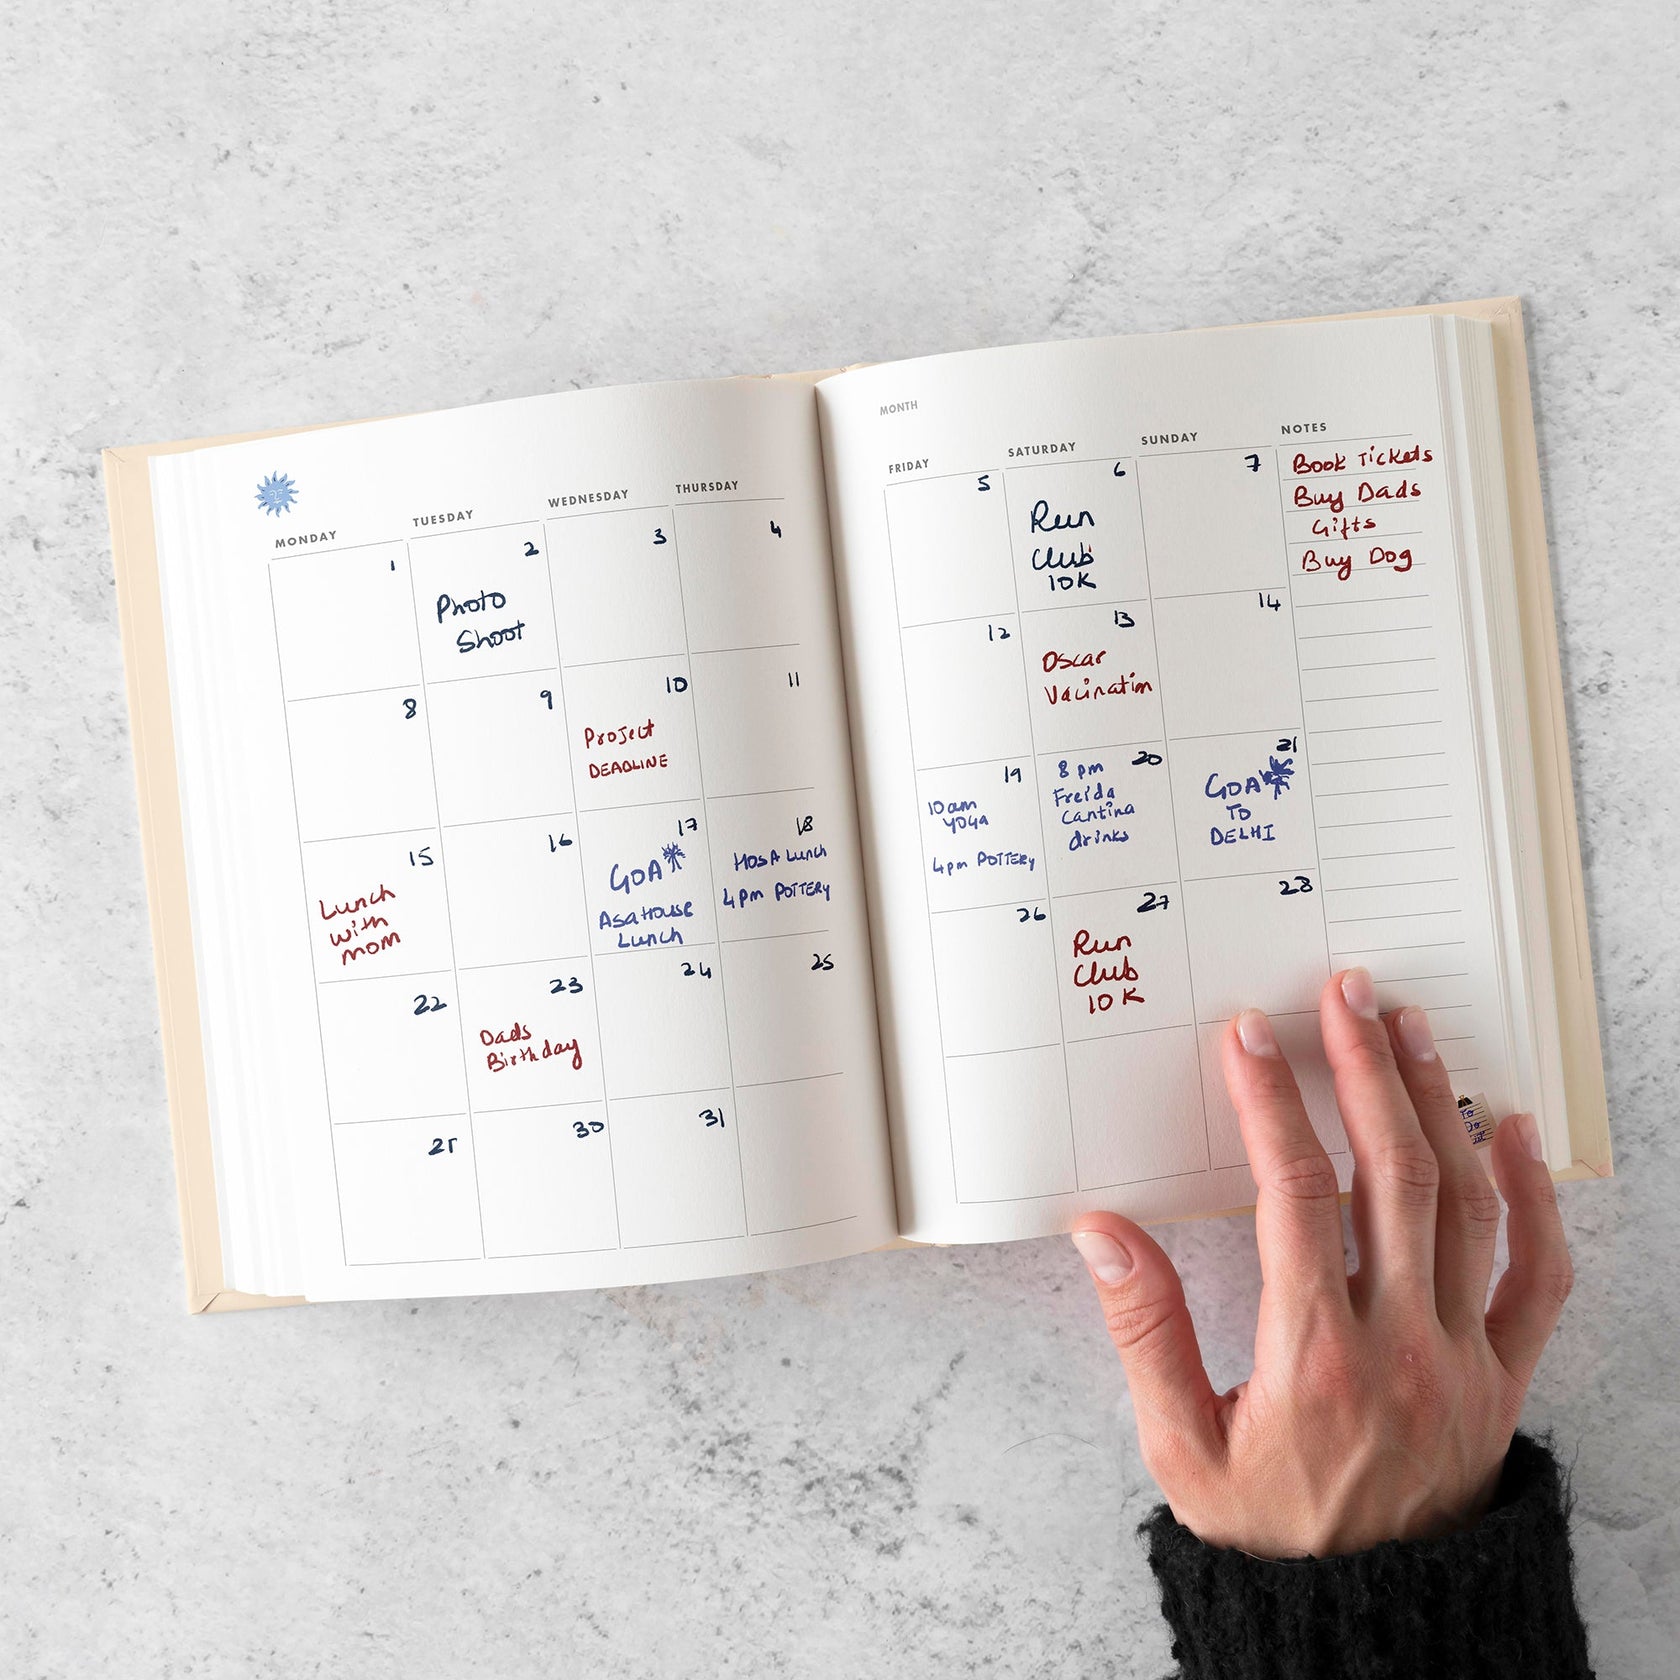 MONDAY
TUESDAY
WEDNESDAY
THURSDAY
1
2
Photo
Shoot
3
4
8
9
10
Project
DEADLINE
11
15
Lunch
with
mom
16
17
GOA
Asa House
Lunch
18
HOSA Lunch
4pm POTTERY
22
23
Dads
Birthday
24
25
30
31
MONTH
FRIDAY
SATURDAY
SUNDAY
NOTES
5
6
Run
Club
10K
7
12
13
Oscar
Vacination
14
19
10am
YOGA
4pm POTTERY
20
8 pm
Freida
Cantina
drinks
21
GOA
TO
DELHI
26
27
Run
Club
10K
28
Book Tickets
Buy Dads
Gifts
Buy Dog
To
Do